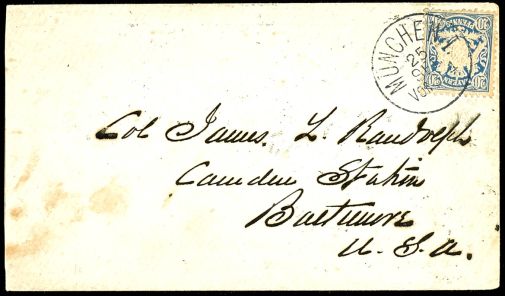 MÜNCHEN I
25
VOR
20
20
Col James. L. Randolph
Camden Station
Baltimore
U. S. A.